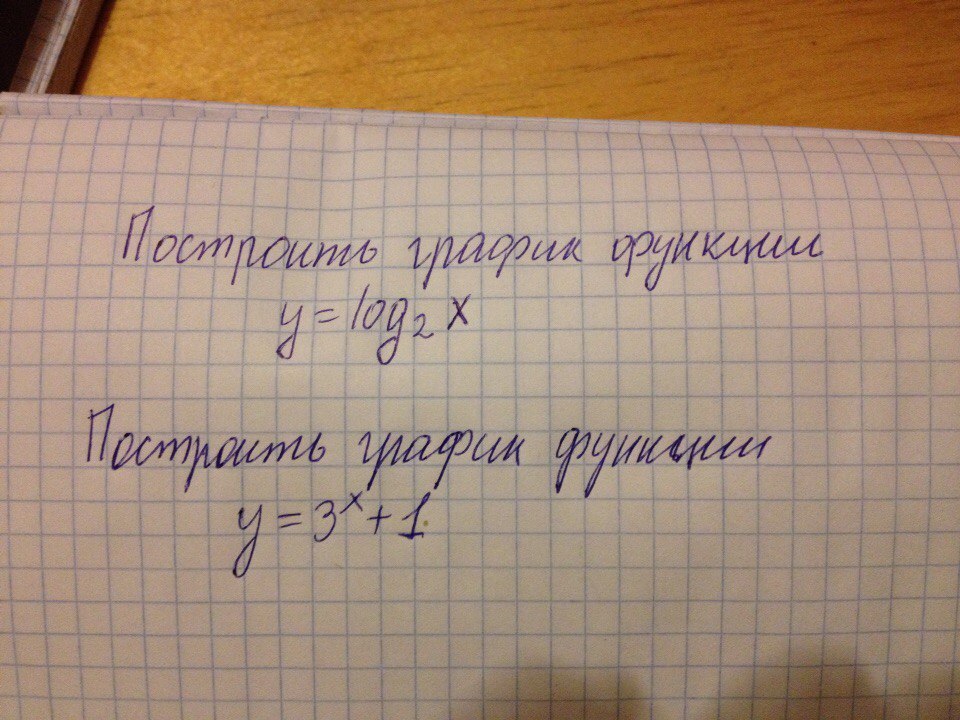 Построить график функции
y = log₂ x
Построить график функции
y = 3ˣ + 1